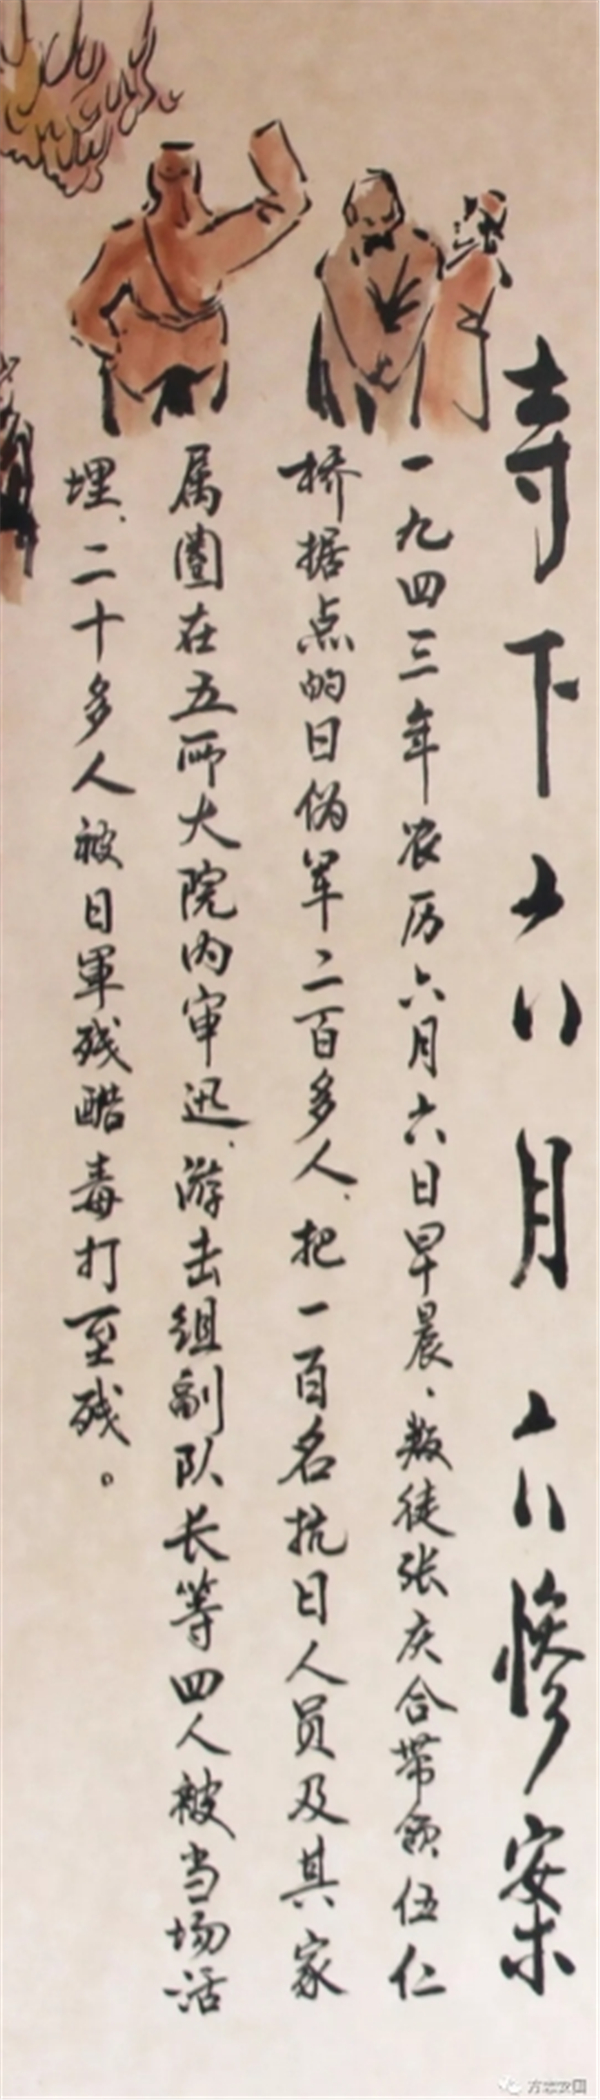 寺下六月六惨案
一九四三年农历六月六日早晨、叛徒张庆合带领伍仁
桥据点的日伪军二百多人、把一百名抗日人员及其家
属圈在五所大院内审迅、游击组副队长等四人被当场活
埋、二十多人被日軍残酷毒打至残。
方志农田